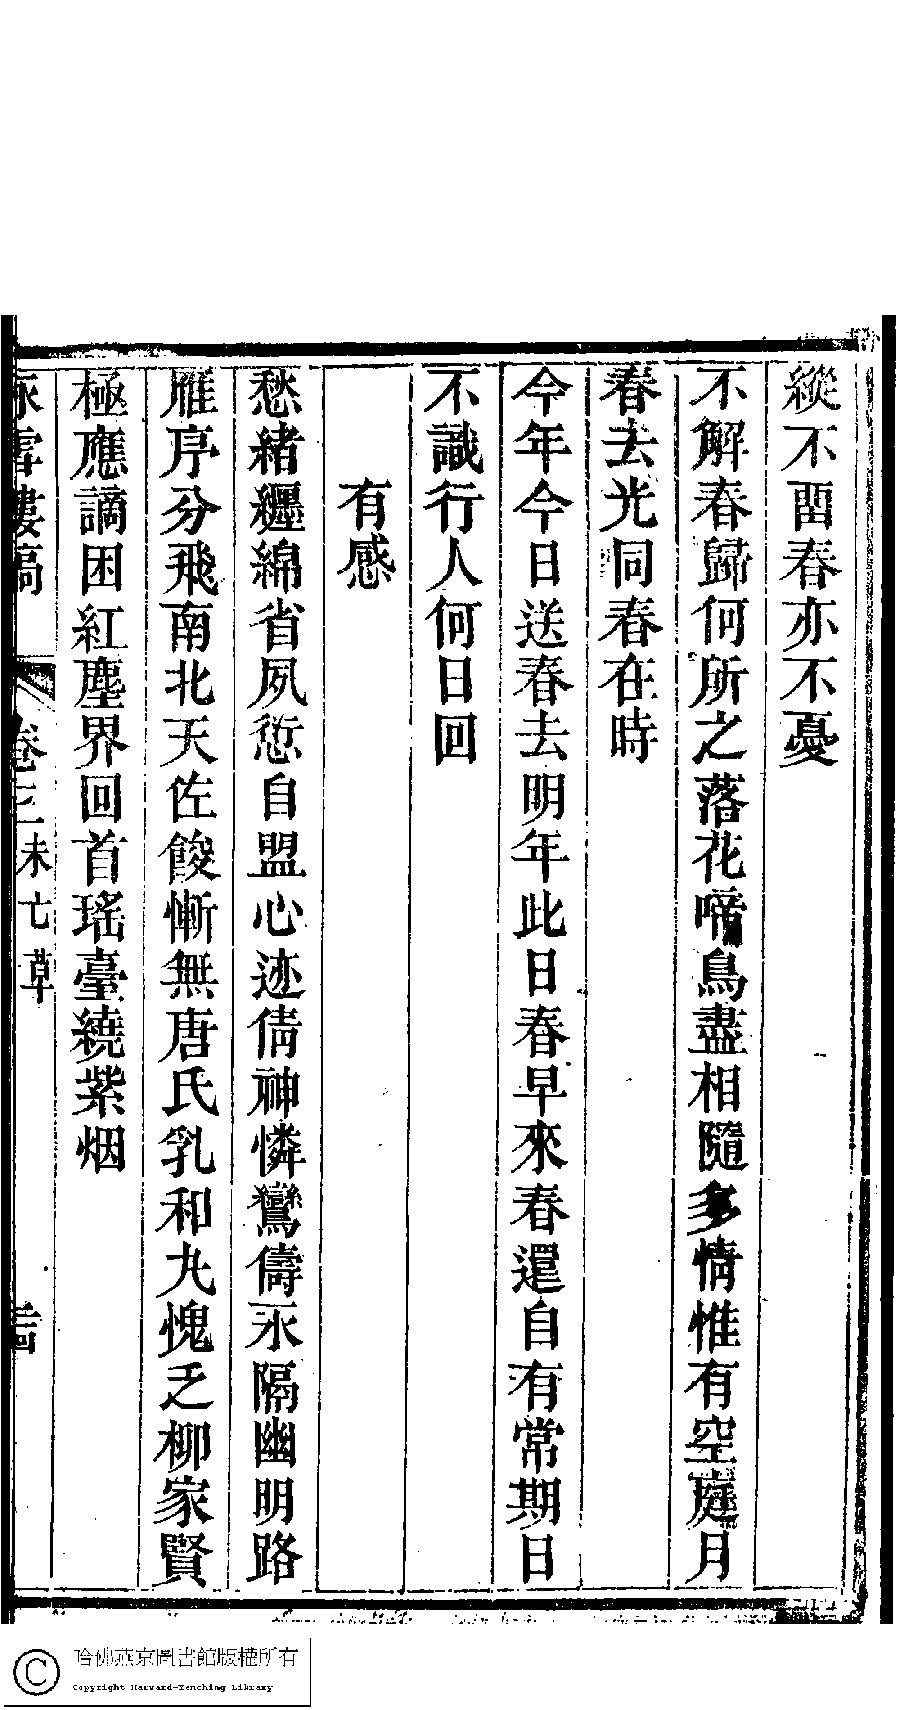 縱不畱春亦不憂
不解春歸何所之落花啼鳥盡相隨多情惟有空庭月
春去光同春在時
今年今日送春去明年此日春早來春還自有常期日
不識行人何日回
有感
愁緒纒綿省夙愆自盟心迹倩神憐鸞儔永隔幽明路
雁序分飛南北天佐餕慚無唐氏乳和丸愧乏柳家賢
極應謫困紅塵界回首瑤臺繞紫烟
咏雪樓稿
卷三未亡草
哈佛燕京圖書館版權所有
Copyright Harvard-Yenching Library